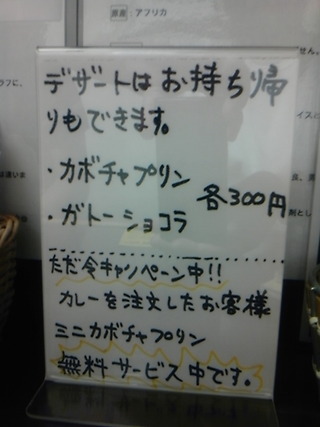 原産:アフリカ
デザートはお持ち帰
りもできます。
・カボチャプリン
各300円
・ガトーショコラ
ただ今キャンペーン中!!
カレーを注文したお客様
ミニカボチャプリン
無料サービス中です。